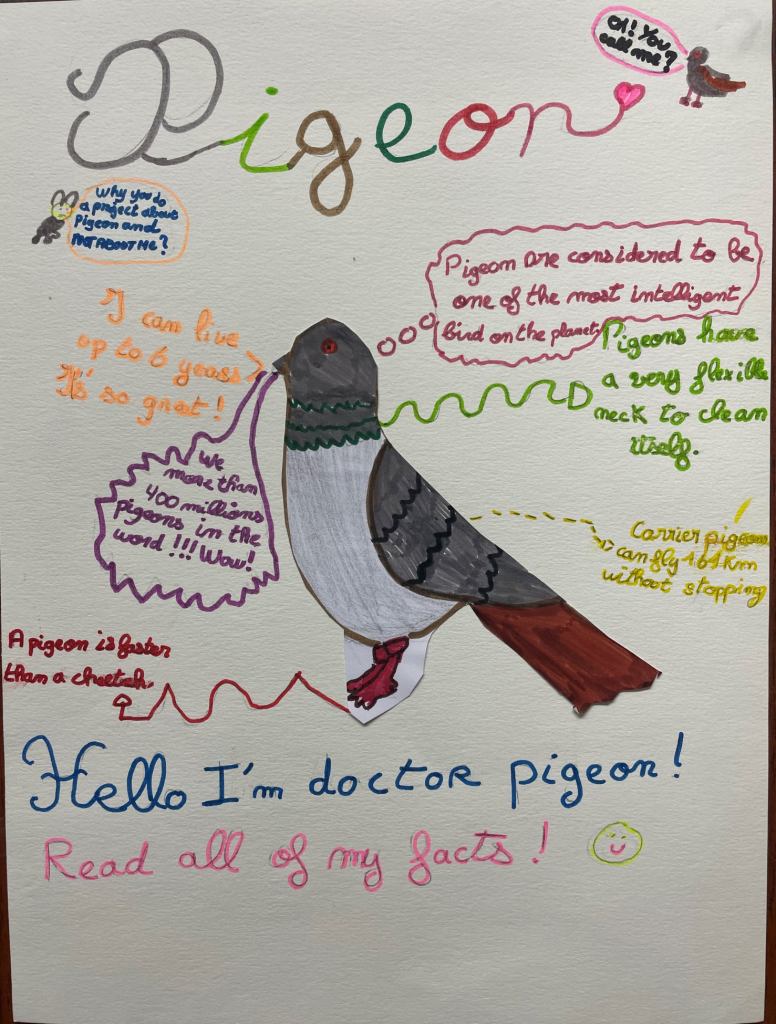 Pigeon
Oi! You
call me?
Why you do
a project about
pigeon and
NOT ABOUT ME?
Pigeon are considered to be
one of the most intelligent
bird on the planet
I can live
up to 6 years
It's so great!
Pigeons have
a very flexible
neck to clean
itself.
We
more than
400 millions
pigeons in the
word!!! Wow!
Carrier pigeons
can fly km
without stopping
A pigeon is faster
than a cheetah.
Hello I'm doctor pigeon!
Read all of my facts!